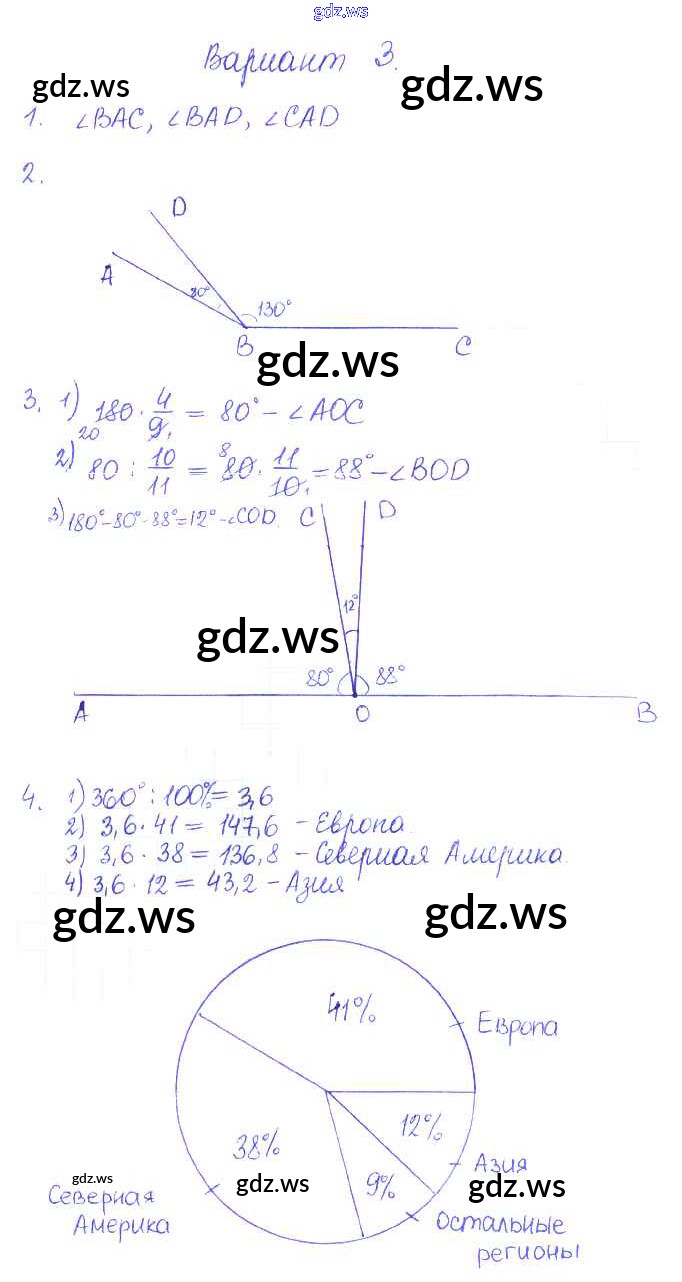 gdz.ws
Вариант 3.
gdz.ws gdz.ws
1. ∠BAC, ∠BAD, ∠CAD
2.
D
A
20°
130°
B
C
gdz.ws
3. 1) 180 · 4/9 = 80° – ∠AOC
20 1
2) 80 : 10/11 = 80 · 11/10 = 88° – ∠BOD
8 1
3) 180° – 80° – 88° = 12° – ∠COD.
C D
12°
gdz.ws
80° 88°
A O B
4. 1) 360° : 100% = 3,6
2) 3,6 · 41 = 147,6 – Европа.
3) 3,6 · 38 = 136,8 – Северная Америка.
4) 3,6 · 12 = 43,2 – Азия
gdz.ws gdz.ws
41%
Европа
12%
38%
Азия
gdz.ws
9%
gdz.ws
gdz.ws
Северная
Америка
Остальные
регионы